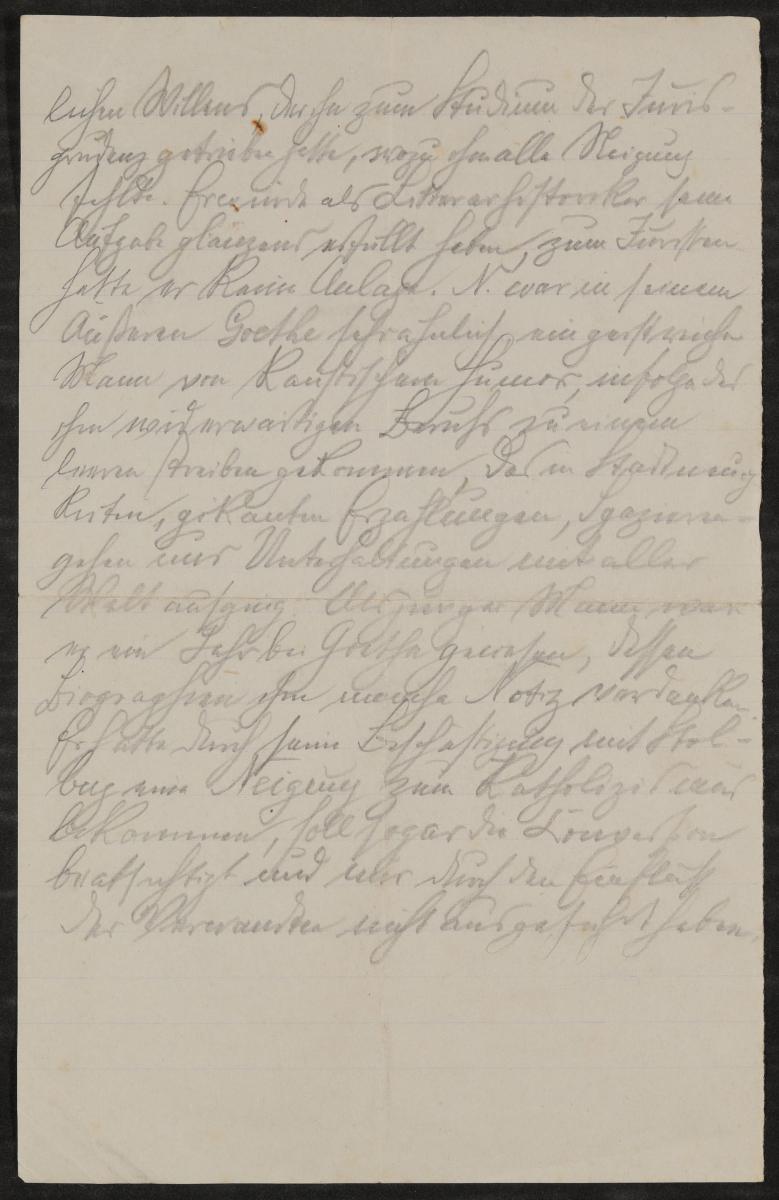 lichen Willens, der ihn zum Studium der Juris-
prudenz getrieben hatte, wozu ihm alle Neigung
fehlte. Er würde als Literarhistoriker seine
Aufgabe glänzend erfüllt haben, zum Juristen
hatte er keine Anlage. N. war in seinem
Äußeren Goethe sehr ähnlich, ein geistreicher
Mann von kaustischem Humor, infolge des
ihm widerwärtigen Berufs zu einem
leeren Treiben gekommen, das in Stadtneuig-
keiten, pikanten Erzählungen, Spazieren-
gehen und Unterhaltungen mit aller
Welt aufging. Als junger Mann war
er ein Jahr bei Goethe gewesen, dessen
Biographien ihm manche Notiz verdanken.
Er hatte durch seine Beschäftigung mit Stol-
berg eine Neigung zum Katholizismus
bekommen, soll sogar die Conversion
beabsichtigt und nur durch den Einfluß
der Verwandten nicht ausgeführt haben.